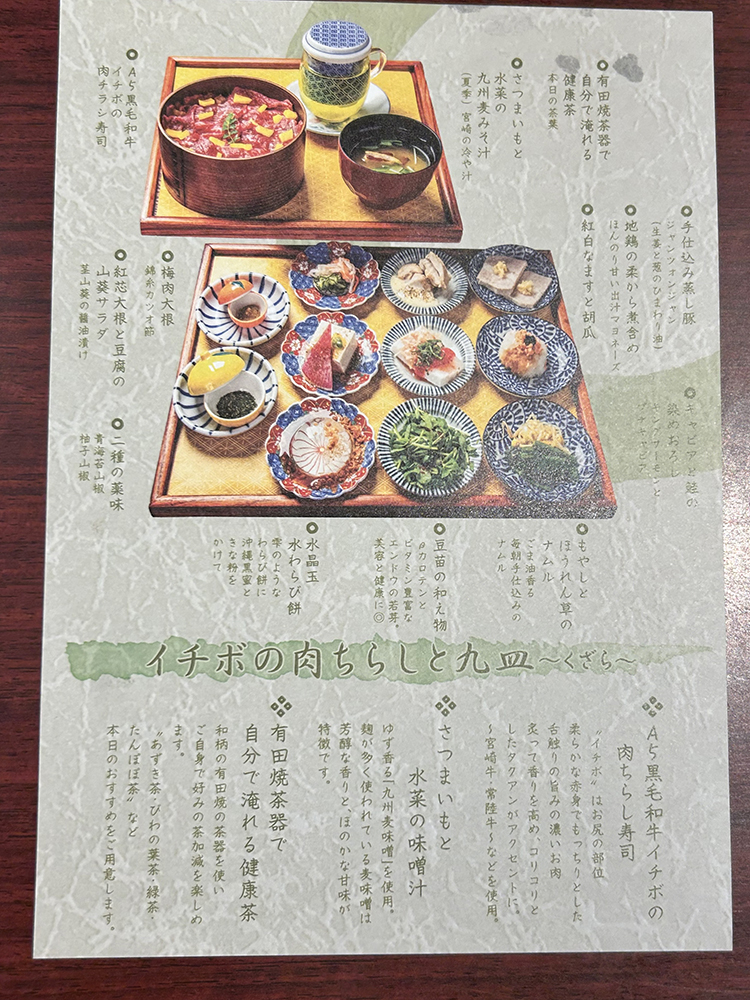 有田焼茶器で
自分で淹れる
健康茶
本日の茶葉
さつまいもと
水菜の
九州麦みそ汁
(夏季)宮崎の冷や汁
A5黒毛和牛
イチボの
肉チラシ寿司
手仕込み蒸し豚
ジャンツォンジャン
(生姜と葱のひまわり油)
地鶏の柔から煮含め
ほんのり甘い出汁マヨネーズ
紅白なますと胡瓜
梅肉大根
錦糸カツオ節
紅芯大根と豆腐の
山葵サラダ
茎山葵の醤油漬け
キャビアと鮭の
染めおろし
二種の薬味
青海苔山椒
柚子山椒
もやしと
ほうれん草の
ナムル
ごま油香る
毎朝手仕込みの
ナムル
豆苗の和え物
βカロテンと
ビタミン豊富な
エンドウの若芽。
美容と健康に◎
水晶玉
水わらび餅
雫のような
わらび餅に
沖縄黒蜜と
きな粉を
かけて
イチボの肉ちらしと九皿〜くざら〜
A5黒毛和牛イチボの
肉ちらし寿司
"イチボ"はお尻の部位
柔らかな赤身でもっちりとした
舌触りの旨みの濃いお肉
炙って香りを高め、コリコリと
したタクアンがアクセントに。
〜宮崎牛・常陸牛〜などを使用。
さつまいもと
水菜の味噌汁
ゆず香る「九州麦味噌」を使用。
麹が多く使われている麦味噌は
芳醇な香りと、ほのかな甘味が
特徴です。
有田焼茶器で
自分で淹れる健康茶
和柄の有田焼の茶器を使い
ご自身で好みの茶加減を楽しめ
ます。
"あずき茶・びわの葉茶・緑茶・
たんぽぽ茶"など
本日のおすすめをご用意します。